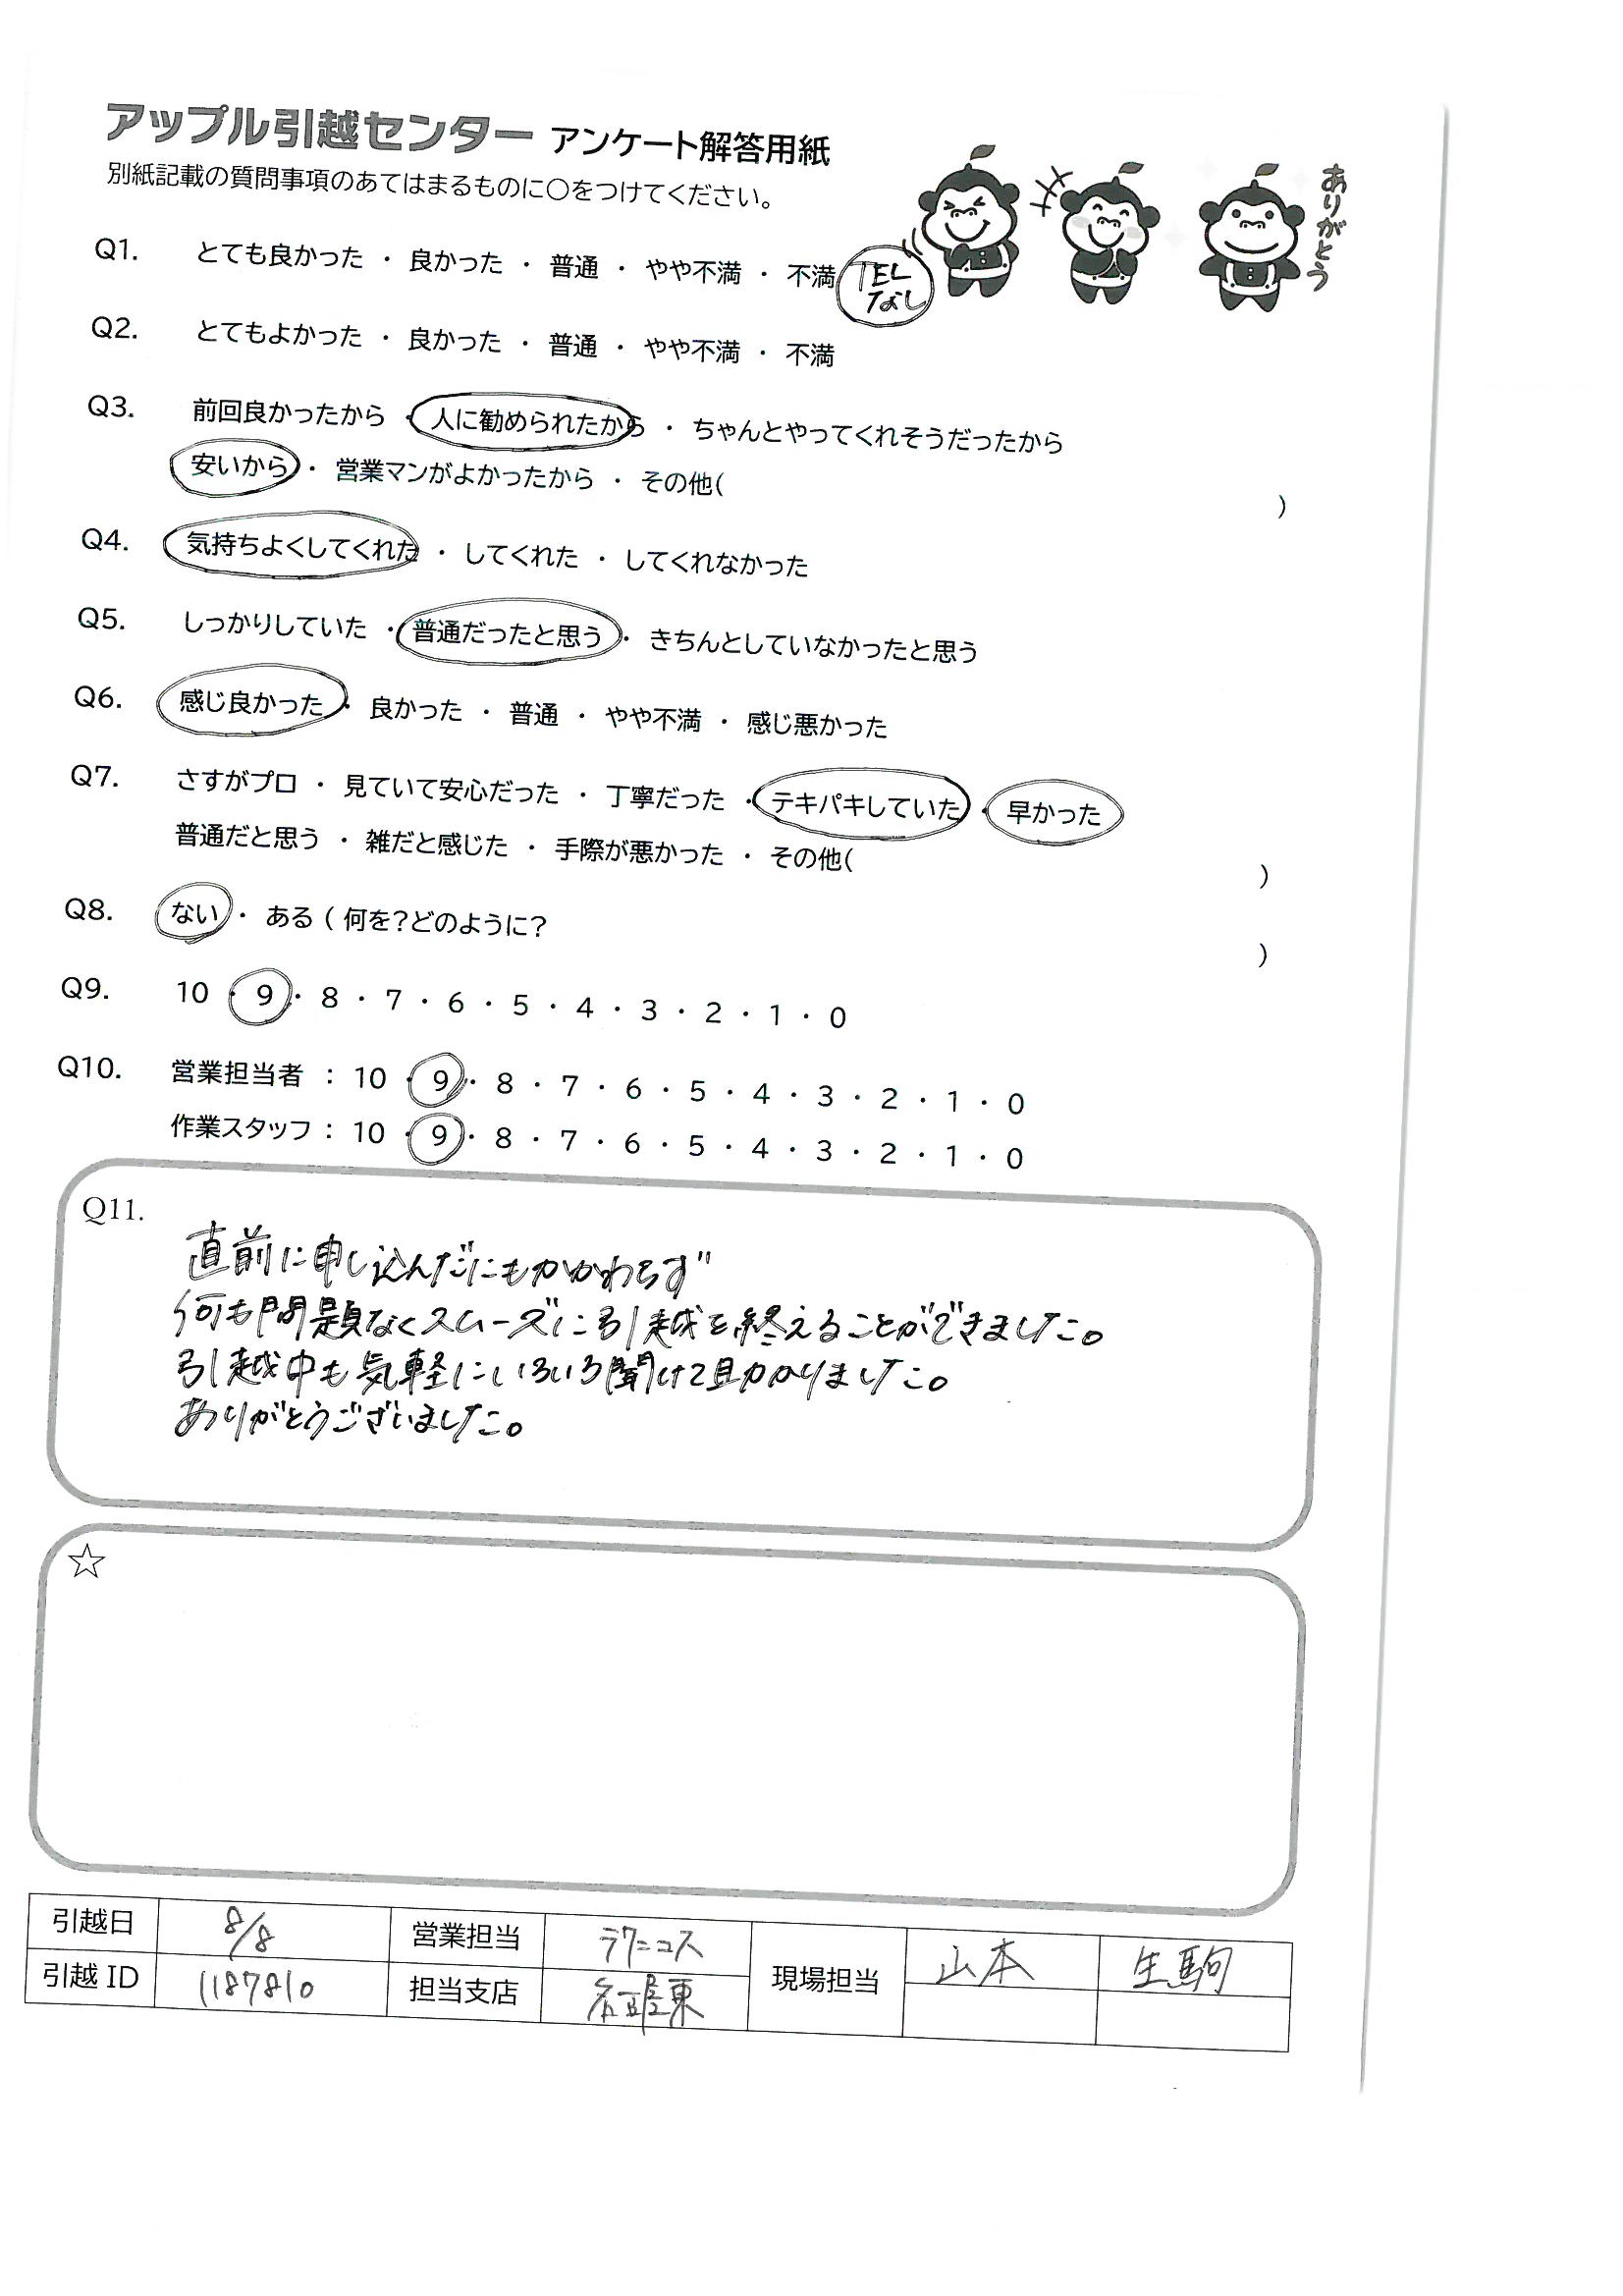 アップル引越センター アンケート解答用紙
別紙記載の質問事項のあてはまるものに○をつけてください。
ありがとう
Q1. とても良かった ・ 良かった ・ 普通 ・ やや不満 ・ 不満 TEL なし
Q2. とてもよかった ・ 良かった ・ 普通 ・ やや不満 ・ 不満
Q3. 前回良かったから ・ 人に勧められたから ・ ちゃんとやってくれそうだったから
安いから ・ 営業マンがよかったから ・ その他( )
Q4. 気持ちよくしてくれた ・ してくれた ・ してくれなかった
Q5. しっかりしていた ・ 普通だったと思う ・ きちんとしていなかったと思う
Q6. 感じ良かった ・ 良かった ・ 普通 ・ やや不満 ・ 感じ悪かった
Q7. さすがプロ ・ 見ていて安心だった ・ 丁寧だった ・ テキパキしていた ・ 早かった
普通だと思う ・ 雑だと感じた ・ 手際が悪かった ・ その他( )
Q8. ない ・ ある ( 何を?どのように? )
Q9. 10 ・ 9 ・ 8 ・ 7 ・ 6 ・ 5 ・ 4 ・ 3 ・ 2 ・ 1 ・ 0
Q10. 営業担当者 : 10 ・ 9 ・ 8 ・ 7 ・ 6 ・ 5 ・ 4 ・ 3 ・ 2 ・ 1 ・ 0
作業スタッフ : 10 ・ 9 ・ 8 ・ 7 ・ 6 ・ 5 ・ 4 ・ 3 ・ 2 ・ 1 ・ 0
Q11.
直前に申し込んだにもかかわらず
何も問題なくスムーズに引越を終えることができました。
引越中も気軽にいろいろ聞けて助かりました。
ありがとうございました。
☆
引越日 8/8 営業担当 ラクニコス 現場担当 山本 生駒
引越 ID 1187810 担当支店 名古屋東